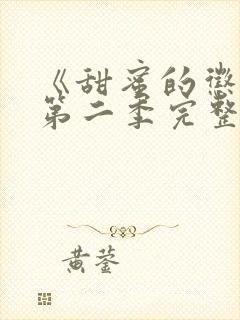 《甜蜜的惩
第二季完整
黄蓥